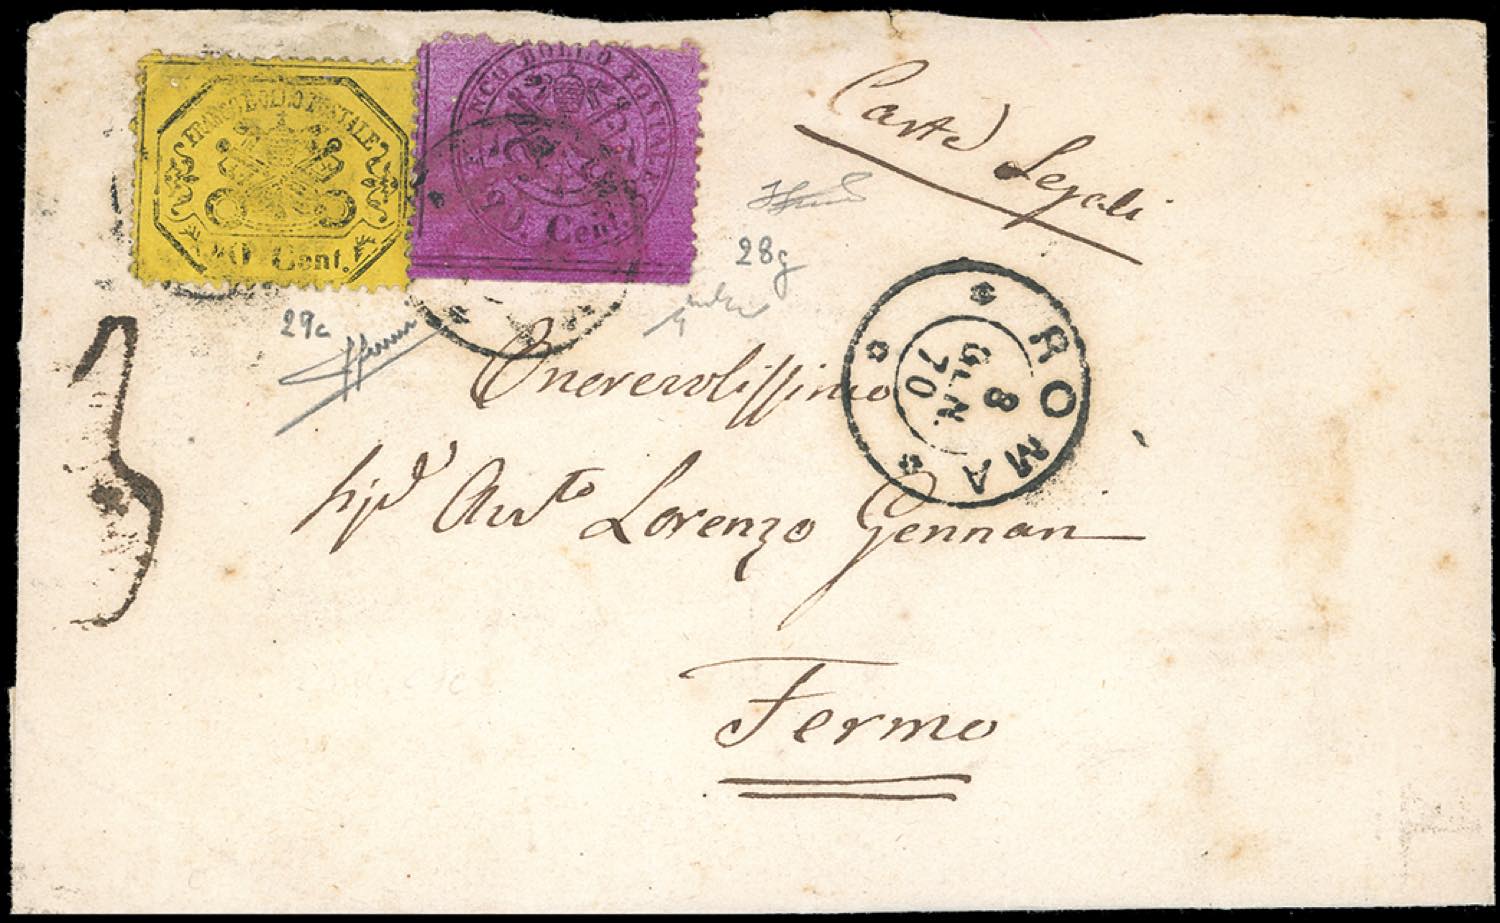 FRANCO BOLLO POSTALE
40 Cent.
FRANCO BOLLO POSTALE
20. Cent.
Carte Legali
28g
29c
ROMA
8
GEN.
70
Onorevolissimo
Sigr Avvto Lorenzo Gennari
Fermo